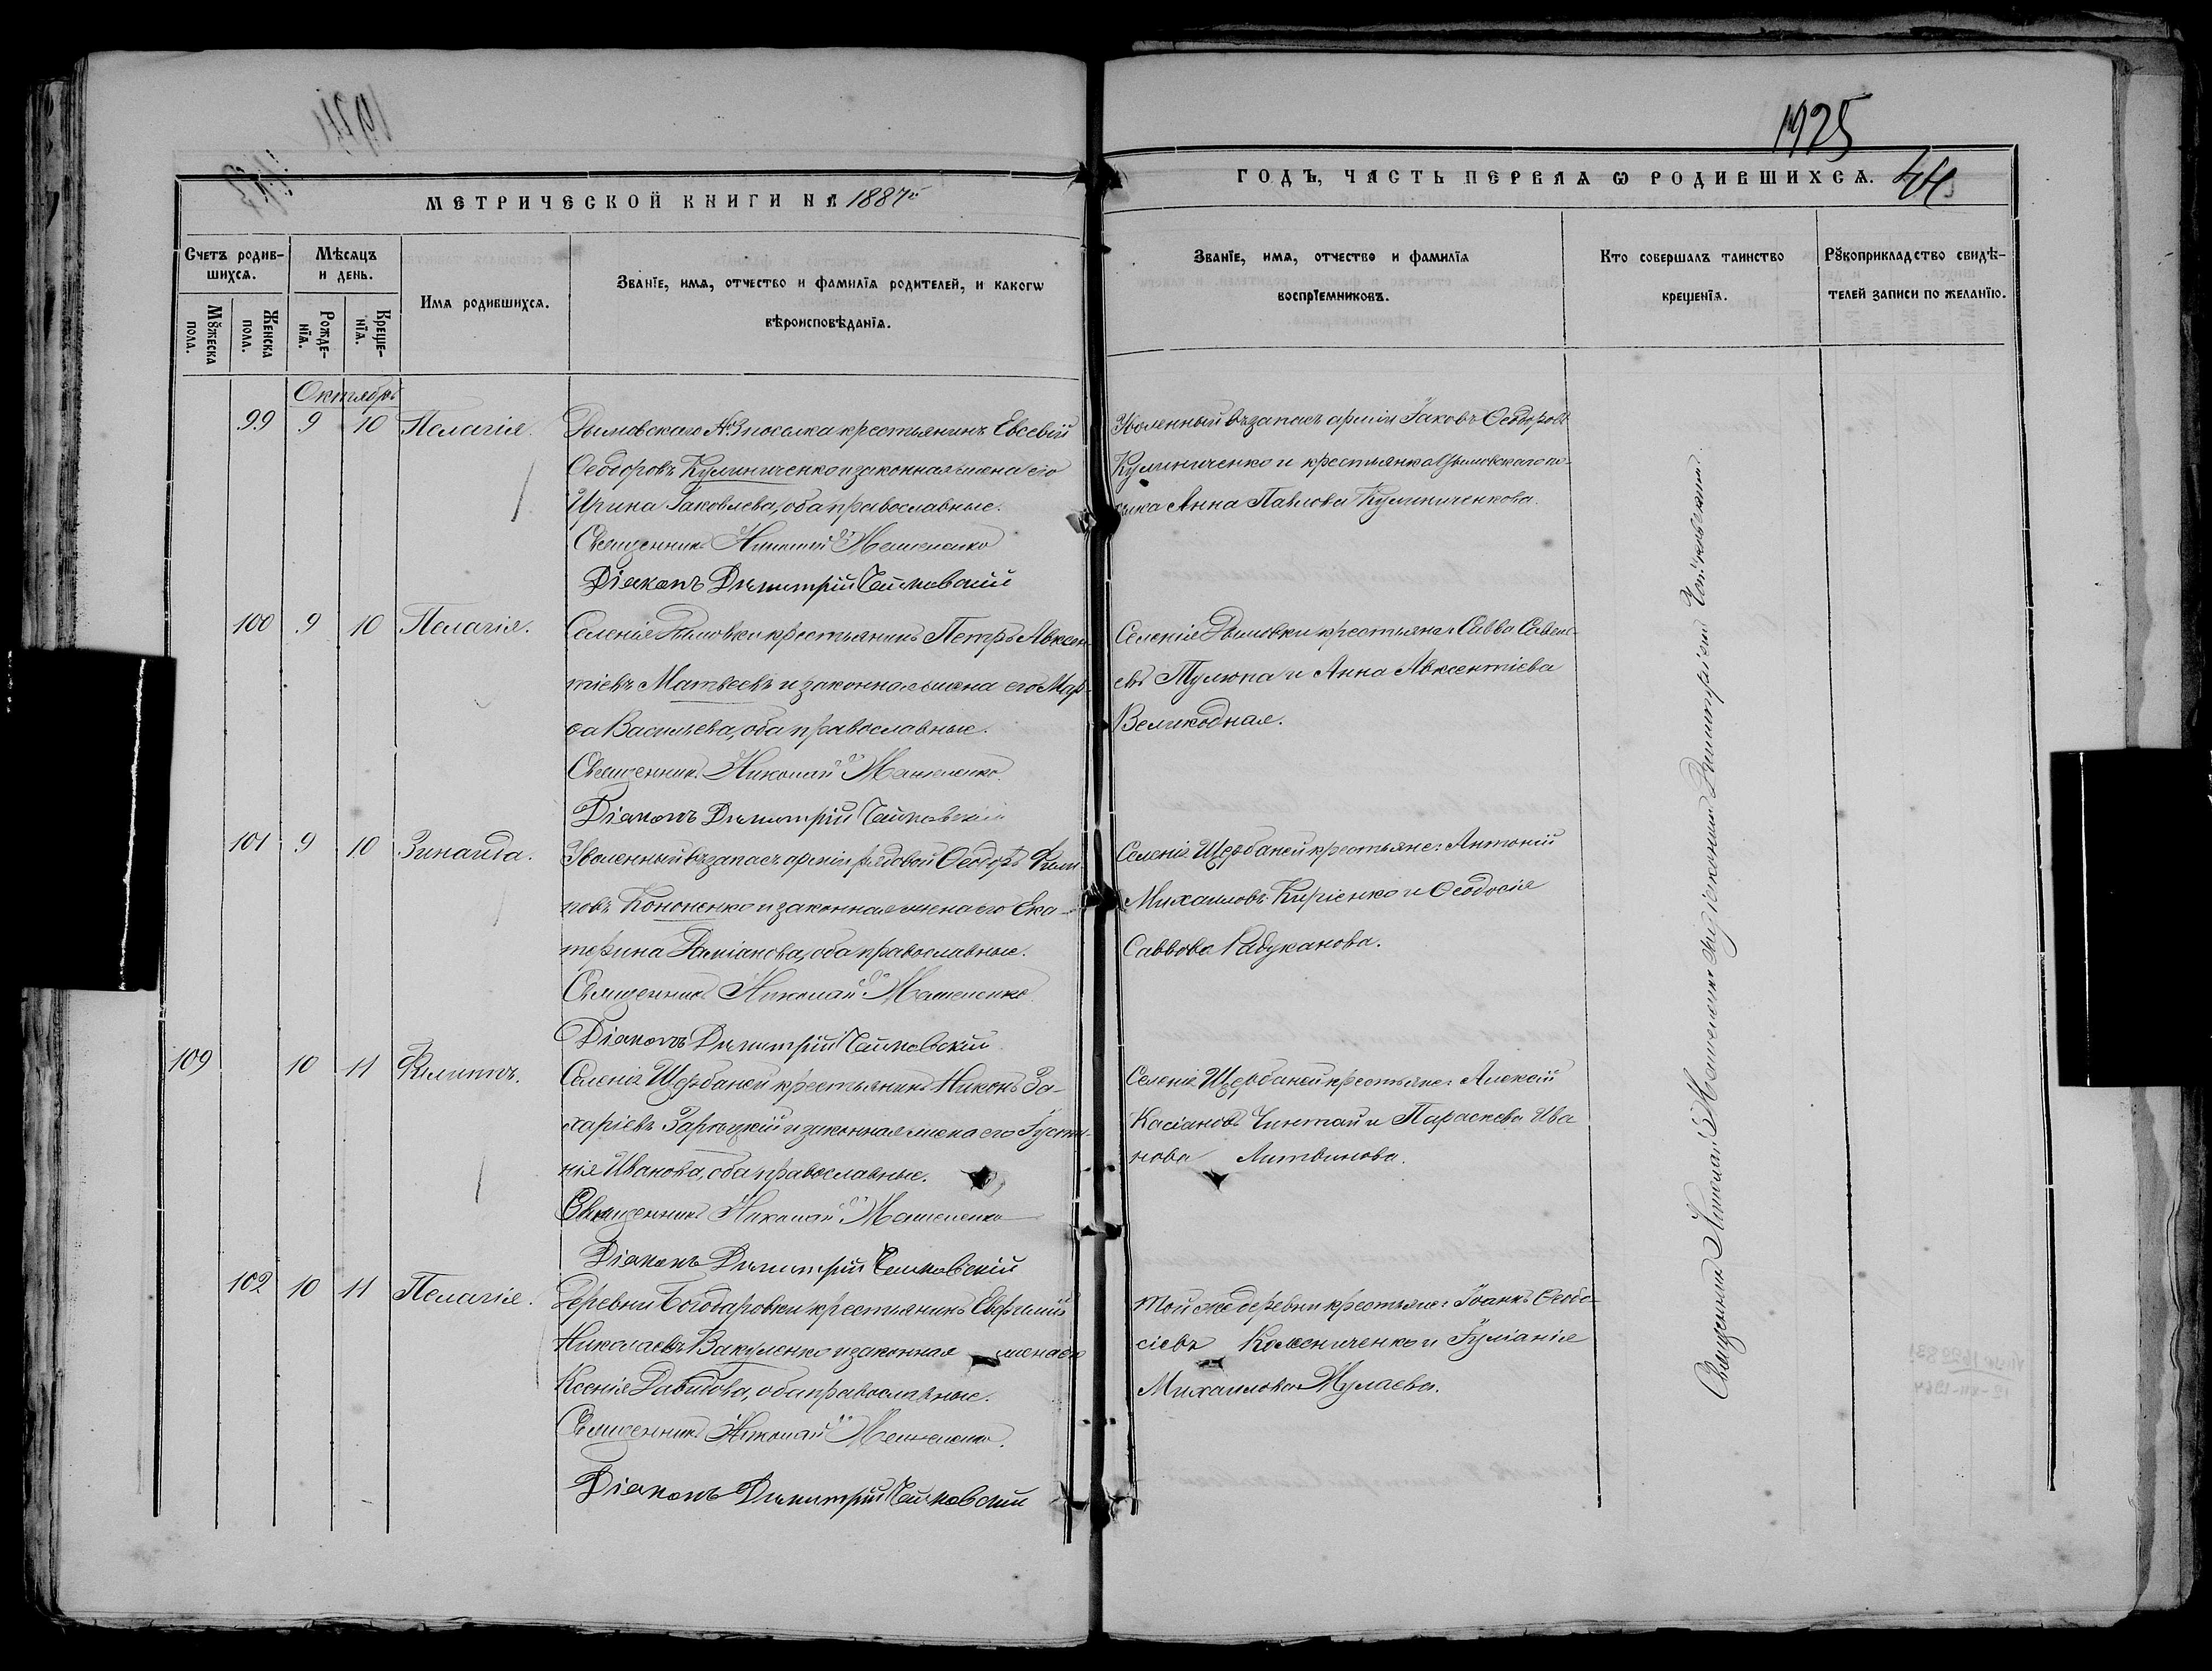 1925
44
МЕТРИЧЕСКОЙ КНИГИ НА 1887й
ГОДЪ, ЧАСТЬ ПЕРВАЯ Ѡ РОДИВШИХСѦ.
Счетъ родив-
шихсѧ.
Мѣсѧцъ
и день.
Имѧ родившихсѧ.
Званїе, имѧ, отчество и фамилїѧ родителей, и какогѡ
вѣроисповѣданїѧ.
Мꙋжеска
пола.
Женска
пола.
Рожде-
нїѧ.
Креще-
нїѧ.
Званїе, имѧ, отчество и фамилїѧ
воспрїемниковъ.
Кто совершалъ таинство
крещенїѧ.
Рꙋкоприкладство свидѣ-
телей записи по желанїю.
Октябрь
99 9 10 Пелагія. Дымовскаго № 3 поселка крестьянинъ Евсевій
Ѳеодоровъ Кулиниченко и законная жена его
Ирина Яковлева, оба православные.
Священникъ Николай Машененко
Діаконъ Димитрій Чайковскій
Уволенный въ запасъ арміи Іаковъ Ѳеодоровъ
Кулиниченко и крестьянка Дымовскаго по-
селка Анна Павлова Кулиниченкова.
100 9 10 Пелагія. Селенія Дымовки крестьянинъ Петръ Авксен-
тіевъ Матвеевъ и законная жена его Мар-
ѳа Васильева, оба православные.
Священникъ Николай Машененко.
Діаконъ Димитрій Чайковскій
Селенія Дымовки крестьяне: Савва
евъ Тулюпа и Анна Авксентіева
Великодная.
101 9 10 Зинаида. Уволенный въ запасъ арміи рядовой Ѳеодоръ Филип-
повъ Кононенко и законная жена его Ека-
терина Даміанова, оба православные.
Священникъ Николай Машененко
Діаконъ Димитрій Чайковскій
Селенія Щербаней крестьяне: Антоній
Михаиловъ Киріенко и Ѳеодосія
Саввова Радуканова.
109 10 11 Филиппъ. Селенія Щербаней крестьянинъ Никонъ За-
харіевъ Зарецкій и законная жена его Іусти-
нія Иванова, оба православные.
Священникъ Николай Машененко
Діаконъ Димитрій Чайковскій
Селенія Щербаней крестьяне: Алексій
Касіановъ и Параскева Ива
нова Литвинова.
102 10 11 Пелагія. Деревни Богодаровки крестьянинъ Евфимій
Николаевъ Вакуленко и законная жена его
Ксенія Давидова, оба православные.
Священникъ Николай Машененко.
Діаконъ Димитрій Чайковскій
Той же деревни крестьяне: Іоаннъ Ѳеодо-
сіевъ Колесниченко и Іуліанія
Михаилова Мулаева.
Священникъ Николай Машененко съ діакономъ Димитріемъ Чайковскимъ.